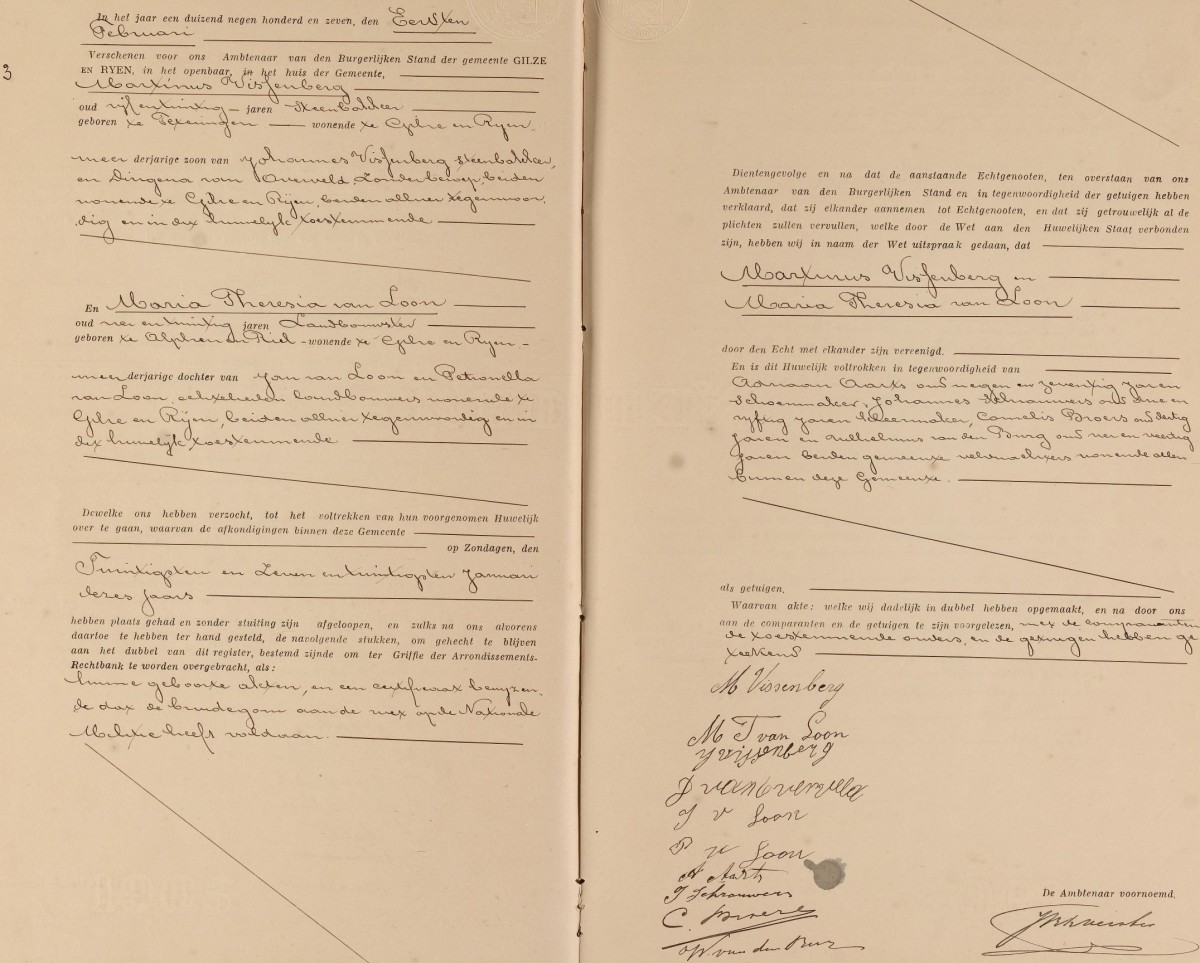 3
In het jaar een duizend negen honderd en zeven, den Eersten
Februari
Verschenen voor ons Ambtenaar van den Burgerlijken Stand der gemeente GILZE
EN RYEN, in het openbaar, in het huis der Gemeente,
Martinus Vissenberg
oud vijfentwintig jaren steenbakker
geboren te Teteringen wonende te Gilze en Ryen
meer derjarige zoon van Johannes Vissenberg steenbakker,
en Dingena van Overveld, zonder beroep, beiden
wonende te Gilze en Rijen, beiden alhier tegenwoor
dig en in dit huwelijk toestemmende
En Maria Theresia van Loon
oud vier en twintig jaren Landbouwster
geboren te Alphen en Riel - wonende te Gilze en Ryen -
meer derjarige dochter van Jan van Loon en Petronella
van Loon, echtelieden landbouwers wonende te
Gilze en Rijen, beiden alhier tegenwoordig en in
dit huwelijk toestemmende
Dewelke ons hebben verzocht, tot het voltrekken van hun voorgenomen Huwelijk
over te gaan, waarvan de afkondigingen binnen deze Gemeente
op Zondagen, den
Twintigsten en Zeven en twintigsten Januari
dezes jaars
hebben plaats gehad en zonder stuiting zijn afgeloopen, en zulks na ons alvorens
daartoe te hebben ter hand gesteld, de navolgende stukken, om gehecht te blijven
aan het dubbel van dit register, bestemd zijnde om ter Griffie der Arrondissements-
Rechtbank te worden overgebracht, als:
hunne geboorte akten, en een certificaat bewijzen
de dat de bruidegom aan de wet op de Nationale
Militie heeft voldaan.
Dientengevolge en na dat de aanstaande Echtgenooten, ten overstaan van ons
Ambtenaar van den Burgerlijken Stand en in tegenwoordigheid der getuigen hebben
verklaard, dat zij elkander aannemen tot Echtgenooten, en dat zij getrouwelijk al de
plichten zullen vervullen, welke door de Wet aan den Huwelijken Staat verbonden
zijn, hebben wij in naam der Wet uitspraak gedaan, dat
Martinus Vissenberg en
Maria Theresia van Loon
door den Echt met elkander zijn vereenigd.
En is dit Huwelijk voltrokken in tegenwoordigheid van
Adriaan Aarts oud negen en zeventig jaren
schoenmaker, Johannes Schrauwers oud drie en
vyftig jaren kleermaker, Cornelis Broers oud dertig
jaren en Wilhelmus van den Burg oud vier en veertig
jaren beiden gemeente veldwachters wonende allen
binnen deze Gemeente.
als getuigen.
Waarvan akte: welke wij dadelijk in dubbel hebben opgemaakt, en na door ons
aan de comparanten en de getuigen te zijn voorgelezen, met de comparanten
de toestemmende ouders, en de getuigen hebben ge
teekend
M Vissenberg
M T van Loon
J vissenberg
D van overveld
J v Loon
P v Loon
A Aarts
J Schrouwers
C. Broers
W van den Burg
De Ambtenaar voornoemd.